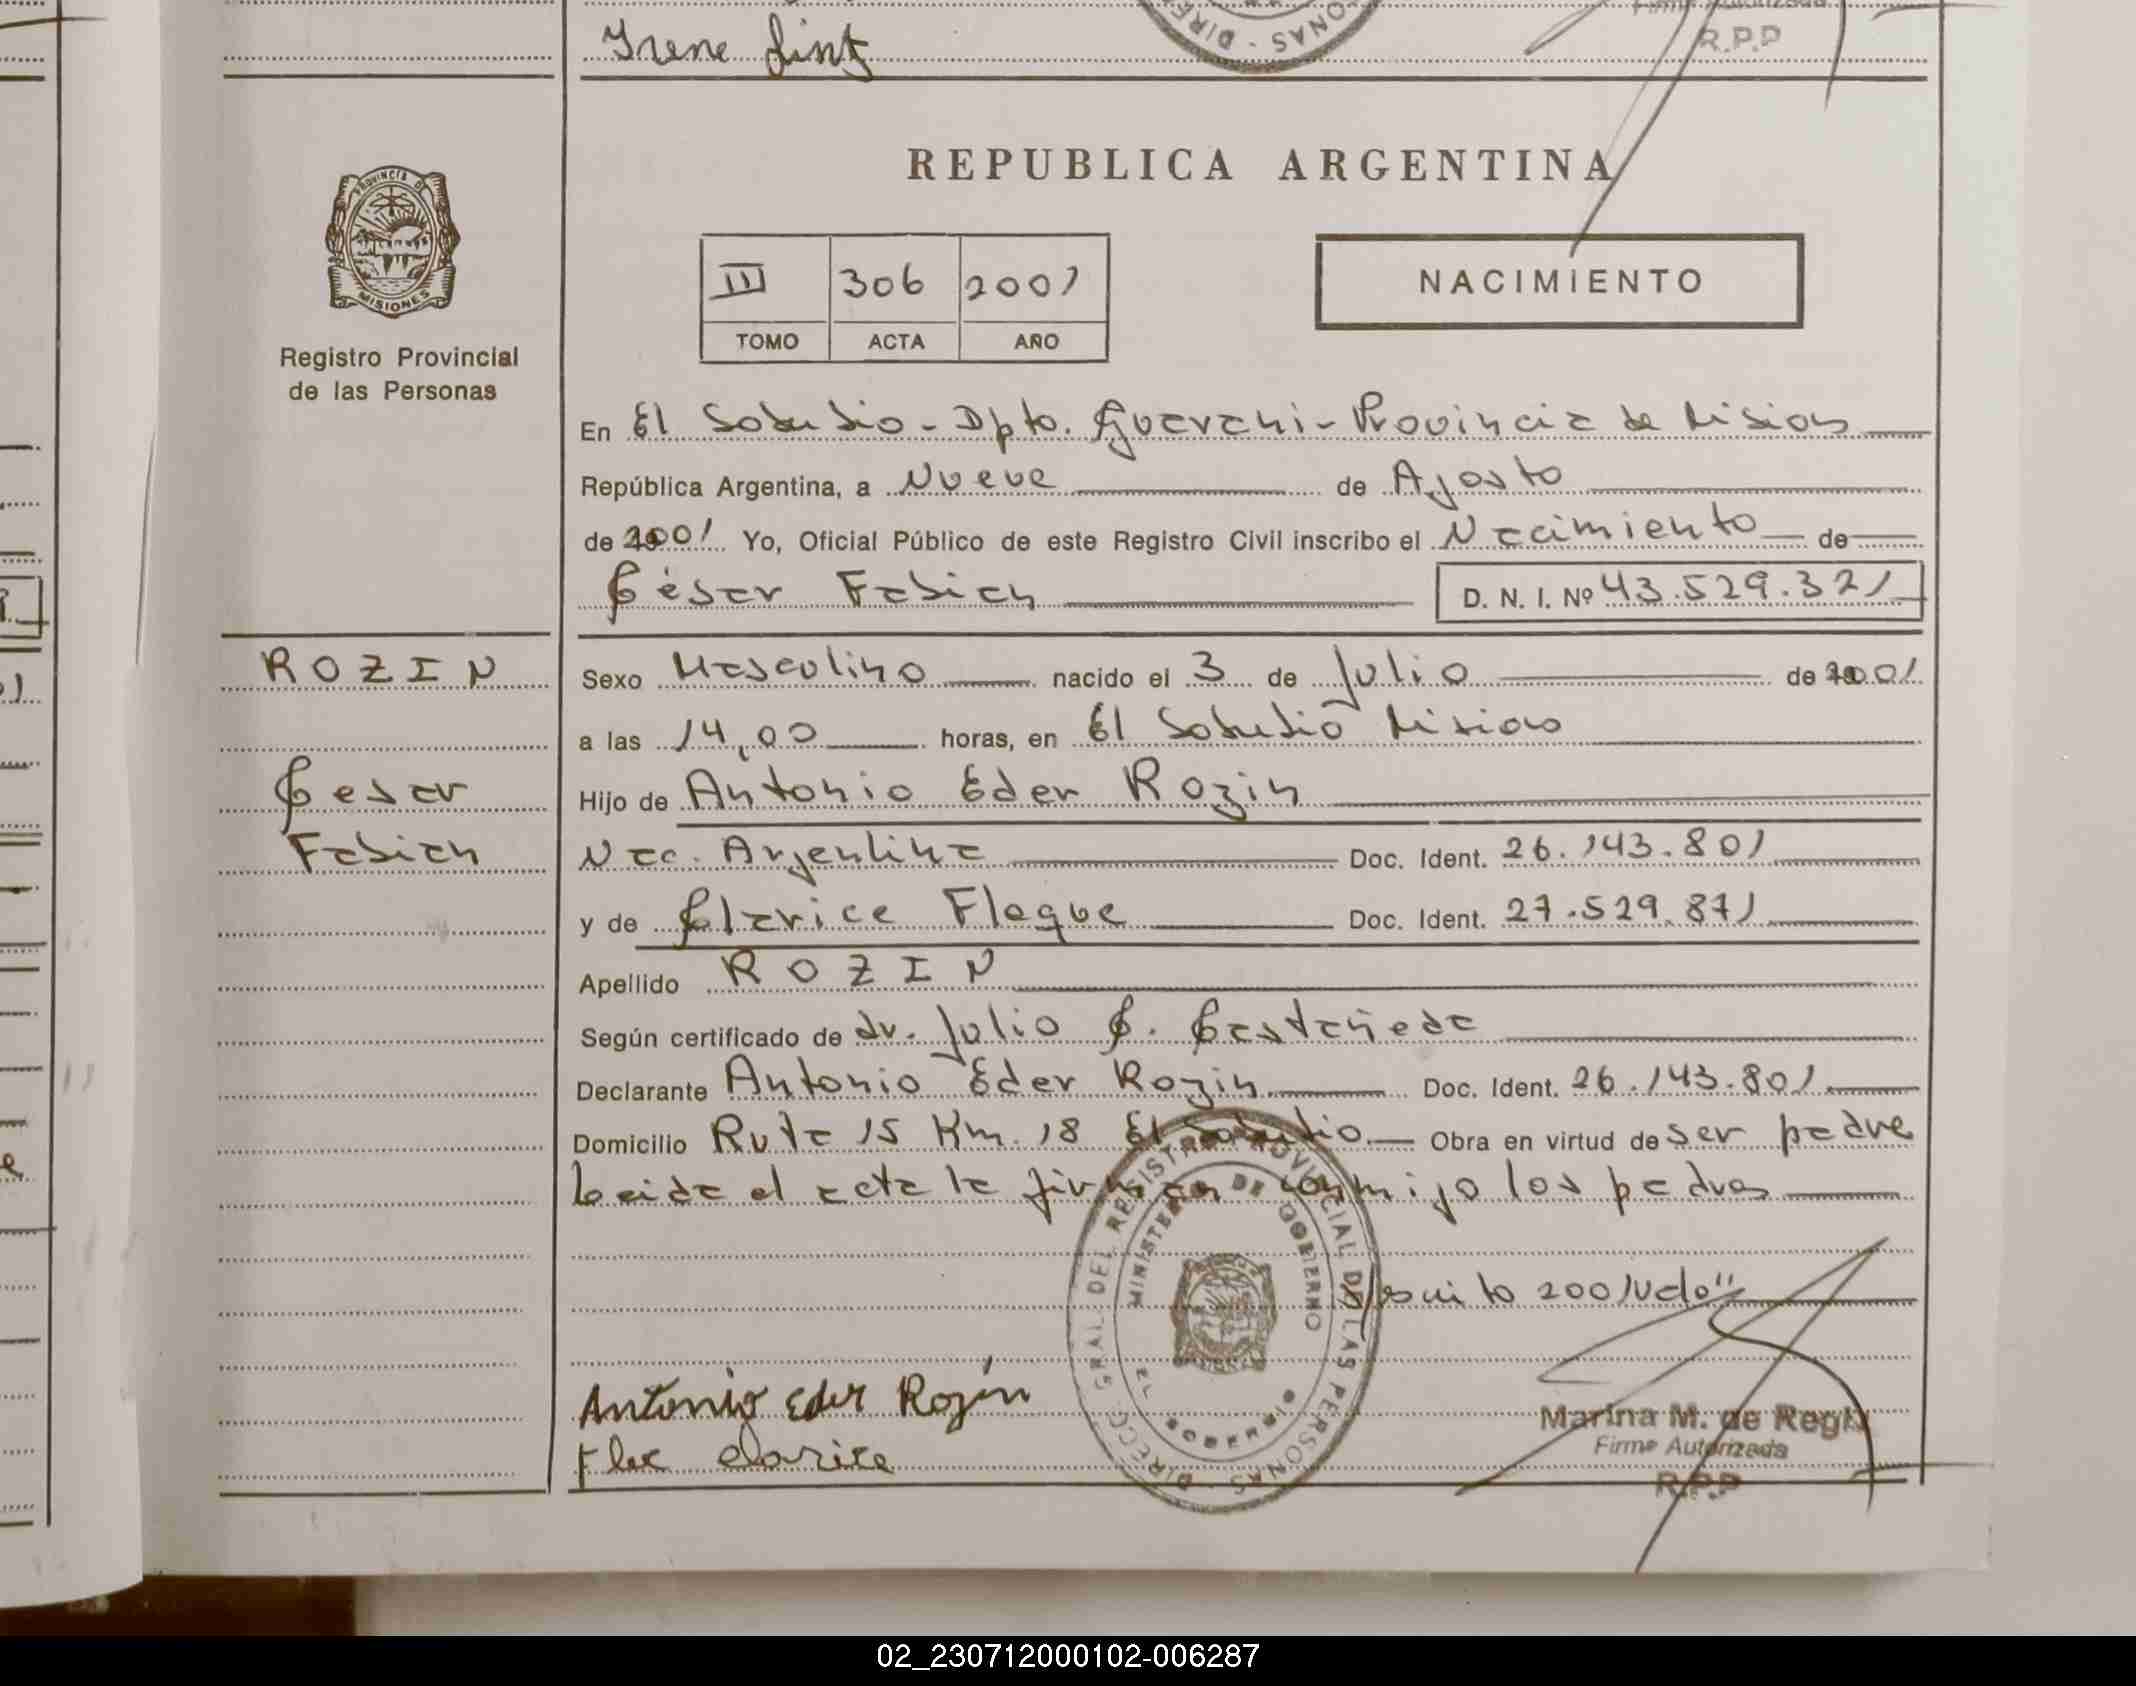 Irene
R.P.P
PROVINCIA DE
MISIONES
Registro Provincial
de las Personas
REPUBLICA ARGENTINA
III 306 2001
TOMO ACTA AÑO
NACIMIENTO
En El Soberbio - Dpto. Guarani - Provincia de Misiones
República Argentina, a Nueve de Agosto
de 2001 Yo, Oficial Público de este Registro Civil inscribo el Nacimiento de
César Fabian D. N. I. Nº 43.529.321
ROZIN
Cesar
Fabian
Sexo Masculino nacido el 3 de Julio de 2001
a las 14,00 horas, en El Soberbio Misiones
Hijo de Antonio Eder Rozin
Nac. Argentina Doc. Ident. 26.143.801
y de Clarice Flaque Doc. Ident. 27.529.871
Apellido ROZIN
Según certificado de dr. Julio C. Castañeda
Declarante Antonio Eder Rozin Doc. Ident. 26.143.801
Domicilio Ruta 15 Km. 18 El Soberbio Obra en virtud de ser padre
Leida el acta la firman conmigo los padres
2001 Vale"
DIRECC. GRAL. DEL REGISTRO PROVINCIAL DE LAS PERSONAS
MINISTERIO DE GOBIERNO
EL SOBERBIO
Antonio Eder Rozin
Flac clarice
Marina M. de Regis
Firma Autorizada
R.P.P
02_230712000102-006287